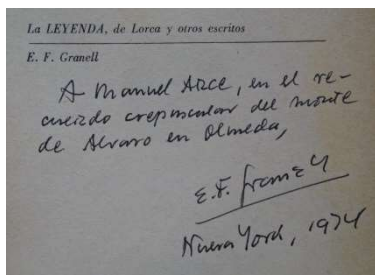 La LEYENDA, de Lorca y otros escritos
E. F. Granell
A Manuel Arce, en el re-
cuerdo crepuscular del monte
de Alvaro en Olmeda,
E. F. Granell
Nueva York, 1974